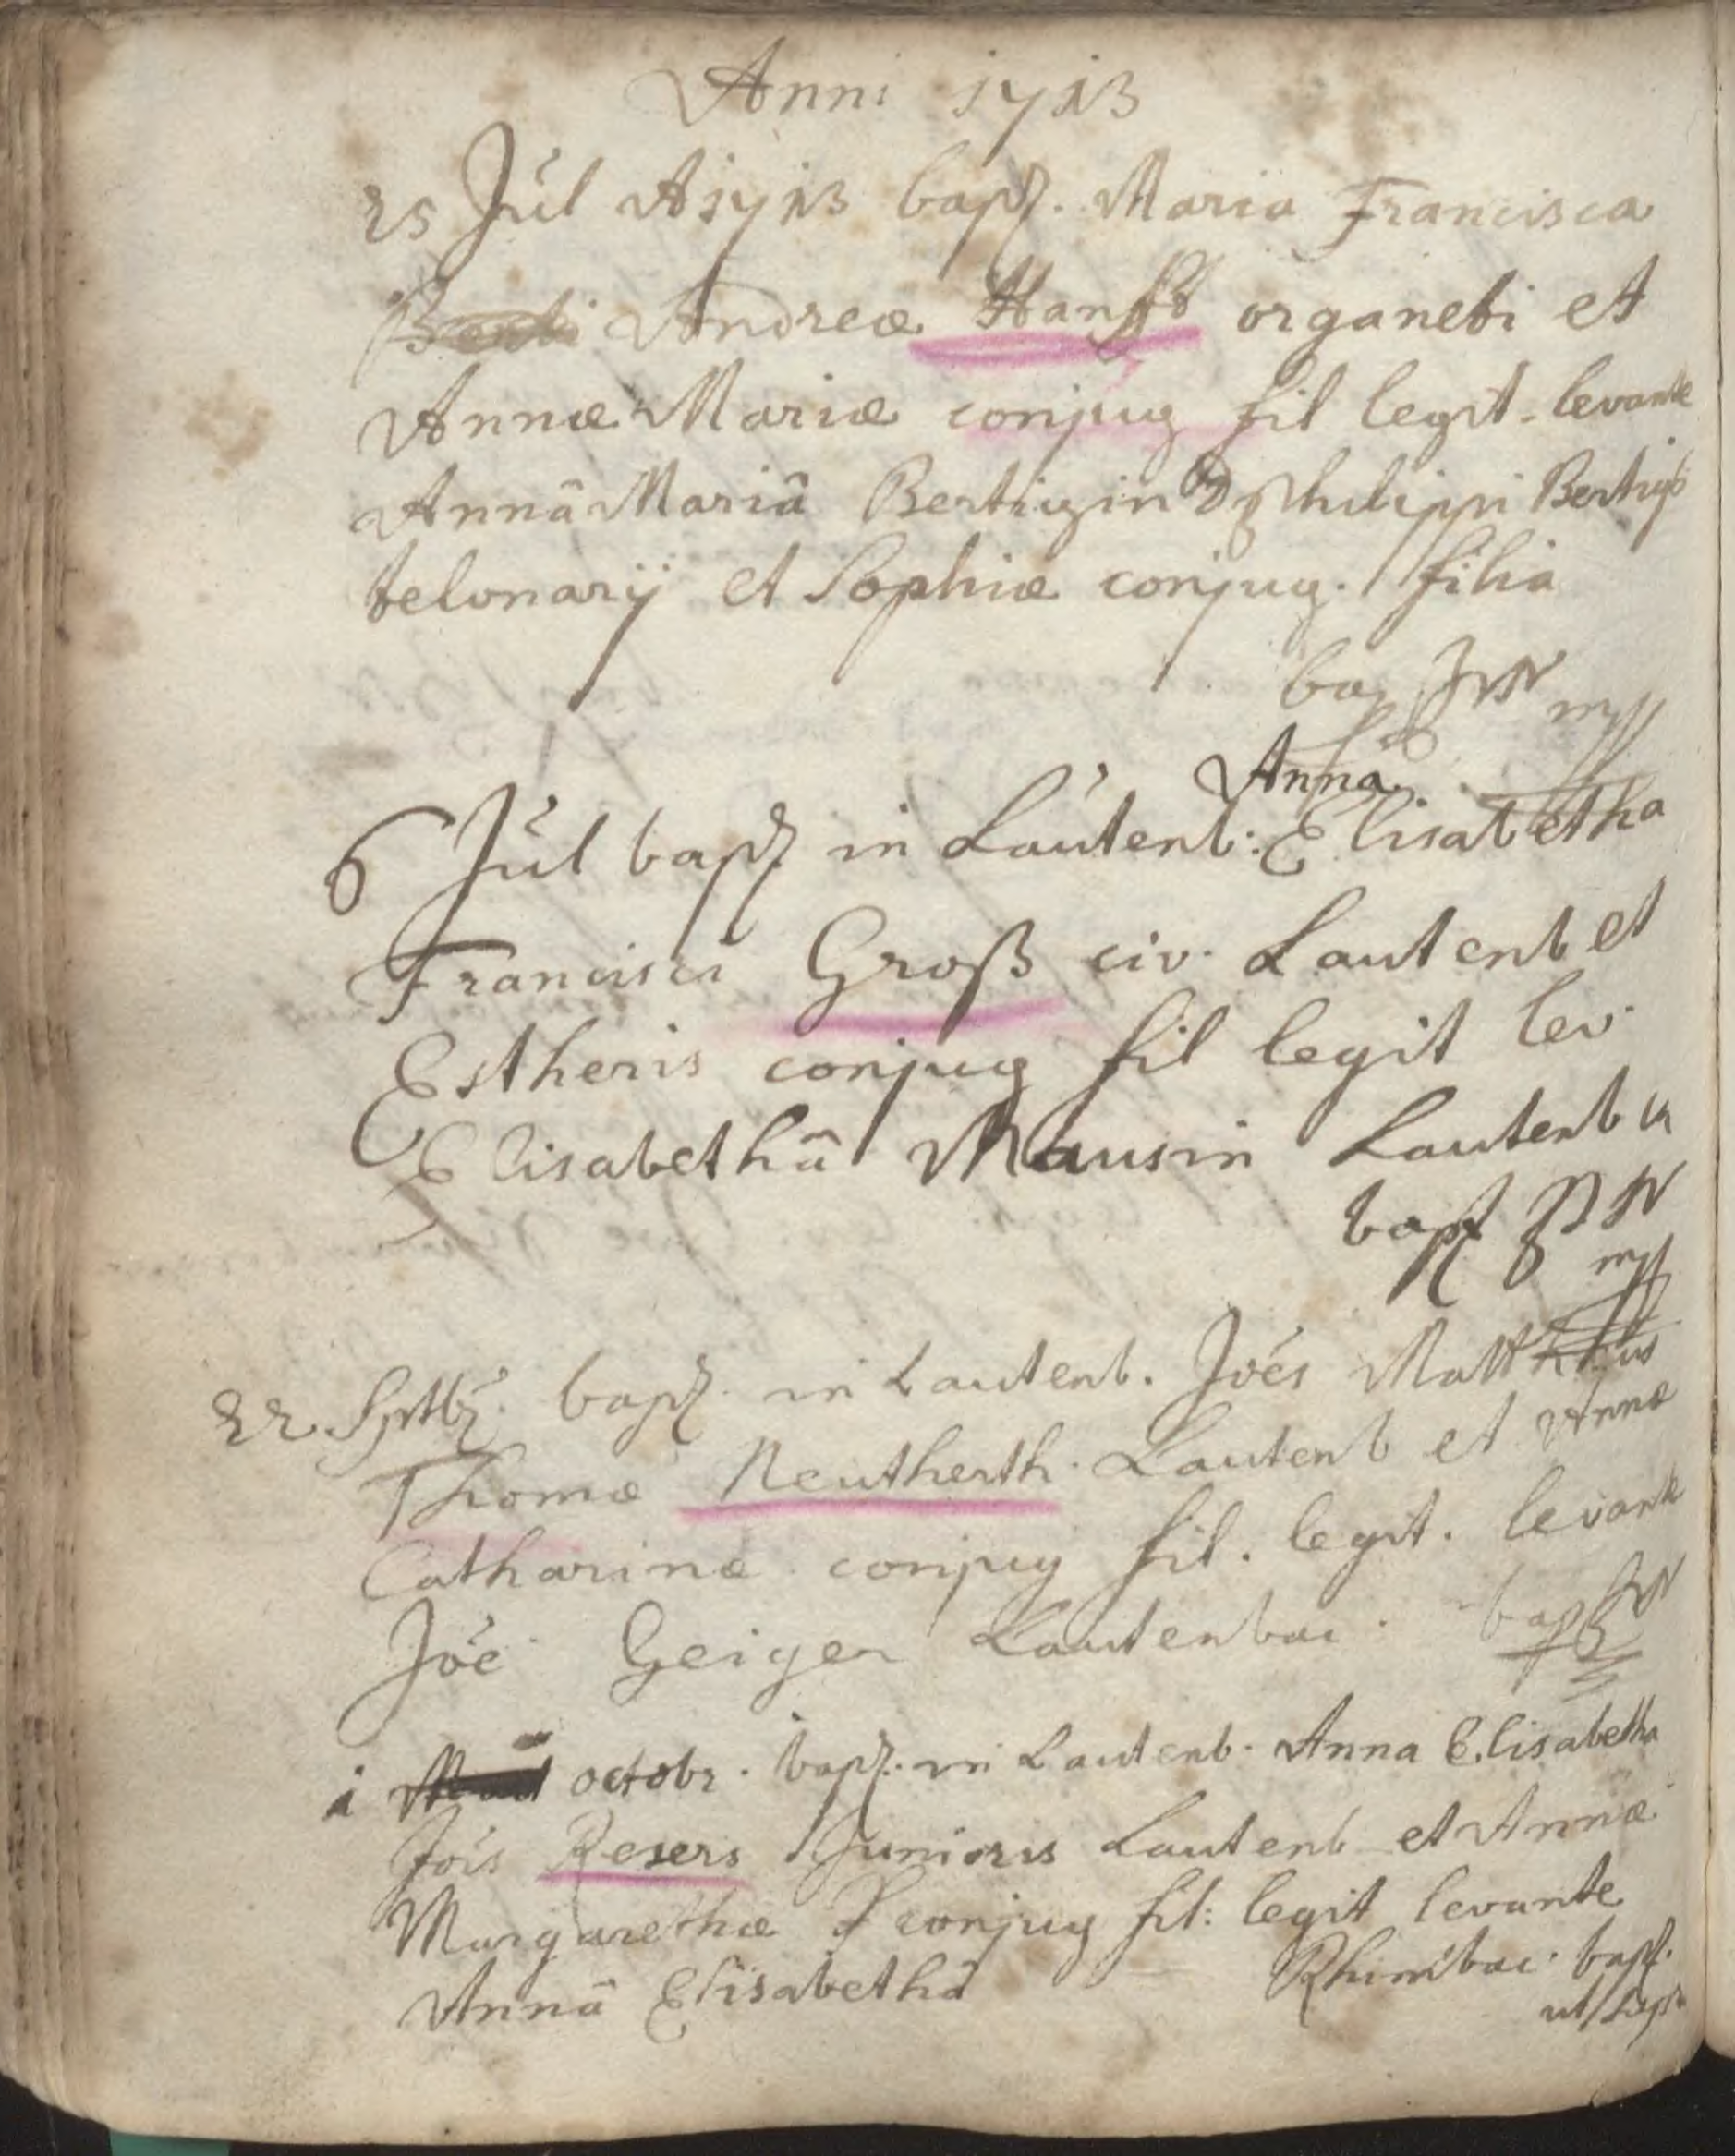 Anni 1713
25 Júl A 1713 bapt. Maria Francisca
Andreæ Hanfft organebi et
Annæ Mariæ conjug fil legit. levante
Annâ Mariâ Bertigin D Philippi Bertigs
telonarij et Sophiæ conjug. filia
bap
Anna
6 Júl bapt in Laútenb: Elisabetha
Francisci Groß civ. Lautenb et
Estheris conjug fil legit lev.
Elisabethâ Mausin Lautenb
bapt
22 Sptbr. bapt. in Lautenb. Joés Matthæus
Thomæ Neutherth. Lautenb et Annæ
Catharinæ conjug fil. legit. levante
Jóe Geiger Lautenbac. bapt
1 octobr. bapt. in Lautenb. Anna Elisabetha
Jois Resers Junioris Lautenb et Annæ
Margarethæ conjug fil: legit levante
Annâ Elisabethâ Rhinibac. bapt.
ut supra